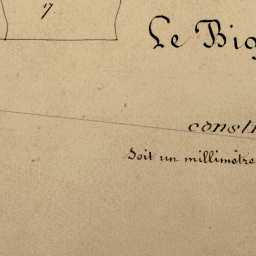 17.
Le Big
constr
Soit un millimètre